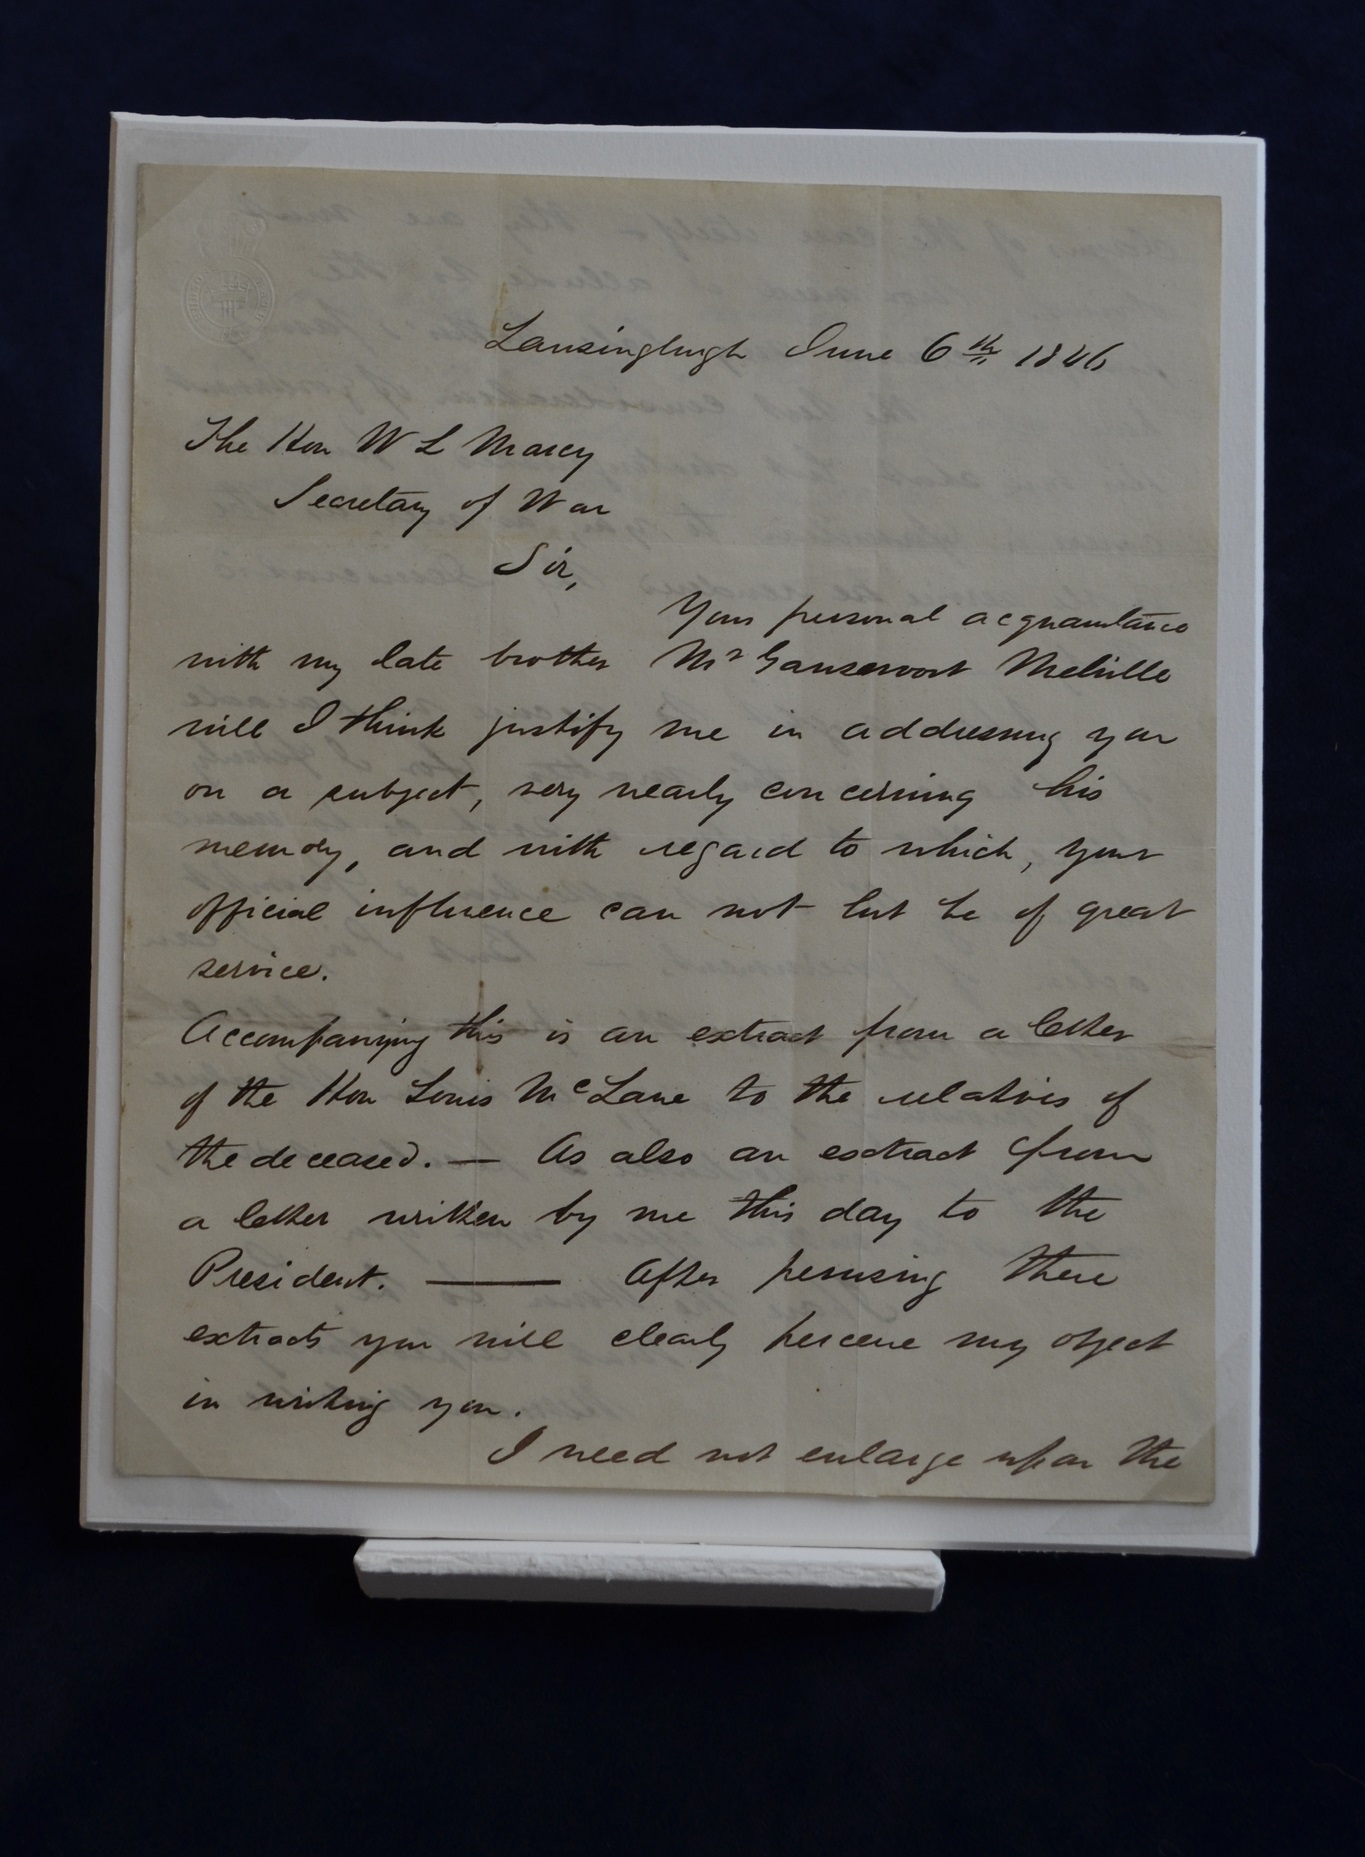 Lansingburgh June 6th 1846
The Hon W L Marcy
Secretary of War
Sir,
Your personal acquaintance
with my late brother Mr Gansevoort Melville
will I think justify me in addressing you
on a subject, very nearly concerning his
memory, and with regard to which, your
official influence can not but be of great
service.
Accompanying this is an extract from a letter
of the Hon Louis McLane to the relatives of
the deceased. — As also an extract from
a letter written by me this day to the
President. — After perusing these
extracts you will clearly perceive my object
in writing you.
I need not enlarge upon the